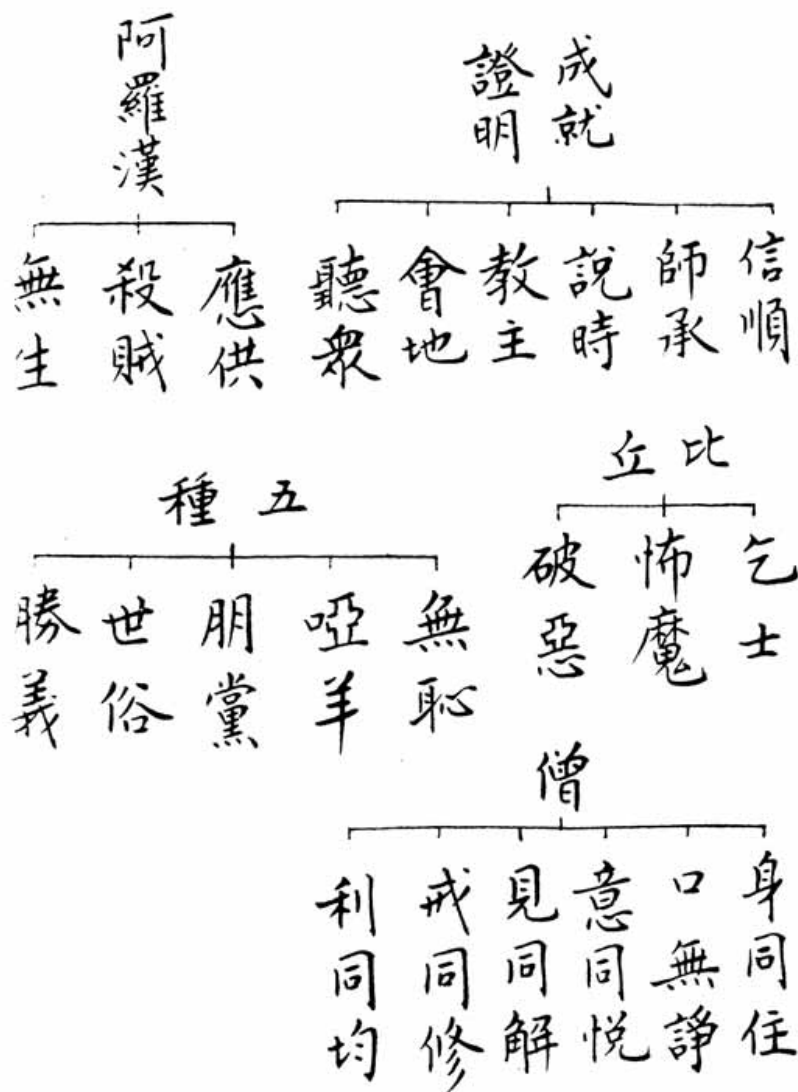 成就
證明
信順
師承
說時
教主
會地
聽眾
阿羅漢
應供
殺賊
無生
比丘
乞士
怖魔
破惡
五種
無恥
啞羊
朋黨
世俗
勝義
僧
身同住
口無諍
意同悦
見同解
戒同修
利同均